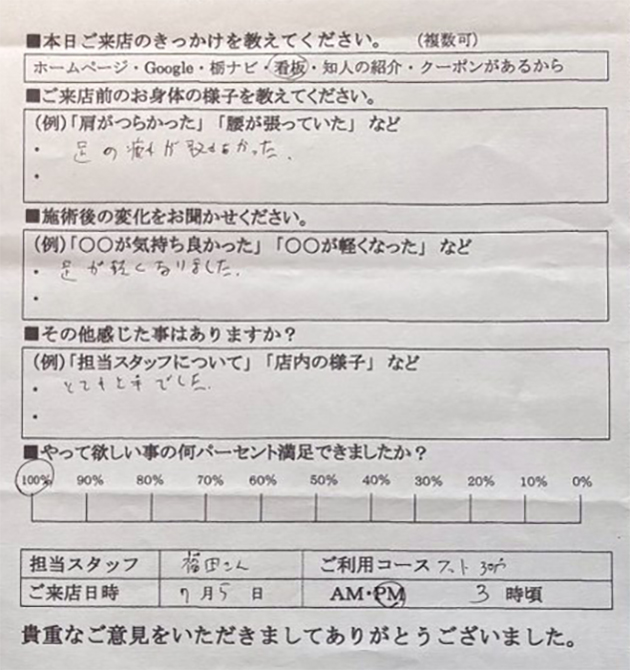 ■本日ご来店のきっかけを教えてください。 (複数可)
ホームページ・Google・栃ナビ・看板・知人の紹介・クーポンがあるから
■ご来店前のお身体の様子を教えてください。
(例)「肩がつらかった」「腰が張っていた」など
・ 足の疲れが取れなかった.
・
■施術後の変化をお聞かせください。
(例)「〇〇が気持ち良かった」「〇〇が軽くなった」など
・ 足が軽くなりました.
・
■その他感じた事はありますか?
(例)「担当スタッフについて」「店内の様子」など
・ とても上手でした.
・
■やって欲しい事の何パーセント満足できましたか?
100% 90% 80% 70% 60% 50% 40% 30% 20% 10% 0%
担当スタッフ 福田さん ご利用コース フット 30分
ご来店日時 7月5日 AM・PM 3時頃
貴重なご意見をいただきましてありがとうございました。